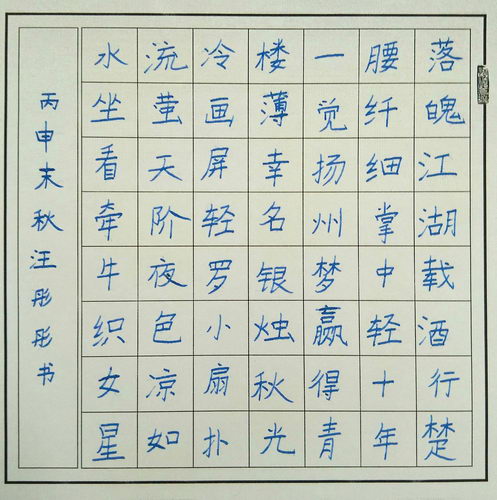 落魄江湖载酒行楚
腰纤细掌中轻十年
一觉扬州梦赢得青
楼薄幸名银烛秋光
冷画屏轻罗小扇扑
流萤天阶夜色凉如
水坐看牵牛织女星
丙申末秋汪彤彤书